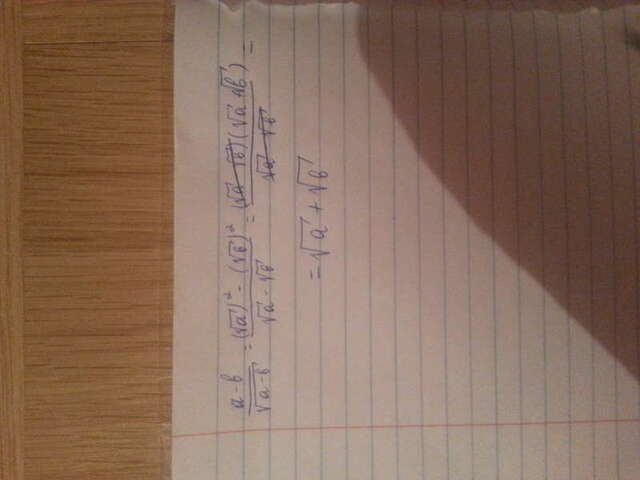 (a - b)/(√(a - b)) = ((√a)² - (√b)²)/(√a - √b) = ((√a - √b)(√a + √b))/(√a - √b) =
= √a + √b